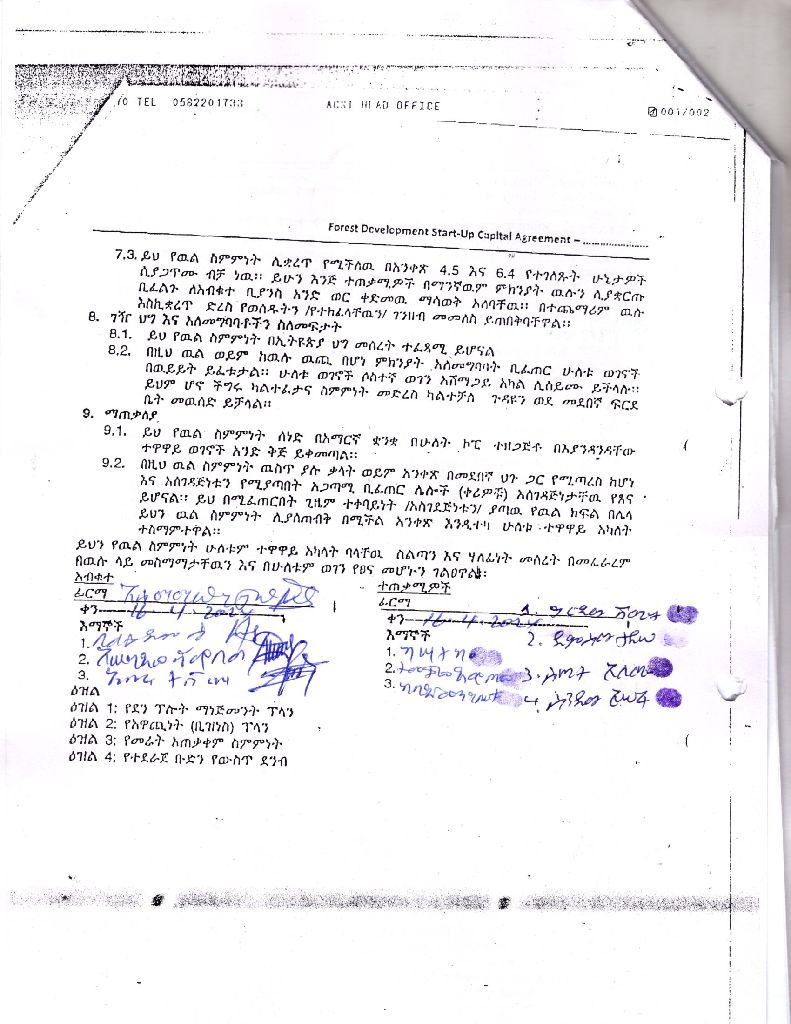 /0 TEL 0582201733 ACSI HEAD OFFICE 001/002
Forest Development Start-Up Capital Agreement – ....................
7.3. ይህ የዉል ስምምነት ሊቋረጥ የሚችለዉ በአንቀጽ 4.5 እና 6.4 የተገለጹት ሁኔታዎች
ሲያጋጥሙ ብቻ ነዉ። ይሁን እንጅ ተጠቃሚዎች በማንኛዉም ምክንያት ዉሉን ሲያቋርጡ
ቢፈልጉ ለአብቁተ ቢያንስ አንድ ወር ቀድመዉ ማሳወቅ አለባቸዉ። በተጨማሪም ዉሉ
እስኪቋረጥ ድረስ የወሰዱትን /የተከፈላቸዉን/ ገንዘብ መመለስ ይጠበቅባቸዋል።
8. ገዥ ህግ እና አለመግባባቶችን ስለመፍታት
8.1. ይህ የዉል ስምምነት በኢትዩጵያ ህግ መሰረት ተፈጻሚ ይሆናል
8.2. በዚህ ዉል ወይም ከዉሉ ዉጪ በሆነ ምክንያት አለመግባባት ቢፈጠር ሁለቱ ወገኖች
በዉይይት ይፈቱታል። ሁለቱ ወገኖች ሶስተኛ ወገን አሸማጋይ አካል ሊሰይሙ ይችላሉ።
ይህም ሆኖ ችግሩ ካልተፈታና ስምምነት መድረስ ካልተቻለ ጉዳዩን ወደ መደበኛ ፍርድ
ቤት መዉሰድ ይቻላል።
9. ማጠቃለያ
9.1. ይህ የዉል ስምምነት ሰነድ በአማርኛ ቋንቋ በሁለት ኮፒ ተዘጋጅቶ በእያንዳንዳቸው
ተዋዋይ ወገኖች አንድ ቅጅ ይቀመጣል።
9.2. በዚህ ዉል ስምምነት ዉስጥ ያሉ ቃላት ወይም አንቀጽ በመደበኛ ህጉ ጋር የሚጣረስ ከሆነ
እና አስገዳጅነቱን የሚያጣበት አጋጣሚ ቢፈጠር ሌሎች (ቀሪዎቹ) አስገዳጅነታቸዉ የጸና
ይሆናል። ይህ በሚፈጠርበት ጊዜም ተቀባይነት /አስገደጅነቱን/ ያጣዉ የዉል ክፍል በሌላ
ይህን ዉል ስምምነት ሊያስጠብቅ በሚችል አንቀጽ እንዲተካ ሁለቱ ተዋዋይ አካለት
ተስማምተዋል።
ይህን የዉል ስምምነት ሁለቱም ተዋዋይ አካላት ባላቸዉ ስልጣን እና ሃለፊነት መሰረት በመፈራረም
በዉሉ ላይ መስማማታቸዉን እና በሁለቱም ወገን የፀና መሆኑን ገልፀዋል።
አብቁተ
ፊርማ
ቀን 16-4-2024
እማኞች
1.
2.
3.
ተጠቃሚዎች
ፊርማ 1.
ቀን 16-4-2024
እማኞች 2.
1.
2. 3.
3. 4.
ዕዝል
ዕዝል 1: የደን ፕሎት ማነጅመንት ፕላን
ዕዝል 2: የአዋጪነት (ቢዝነስ) ፕላን
ዕዝል 3: የመሬት አጠቃቀም ስምምነት
ዕዝል 4: የተደራጀ ቡድን የውስጥ ደንብ